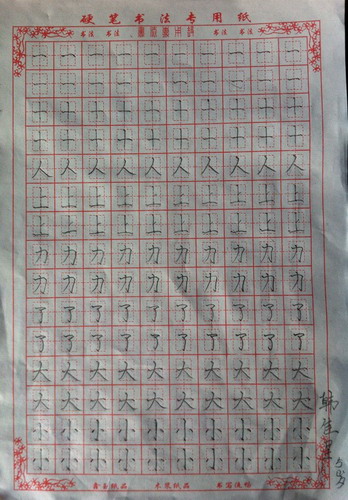 硬笔书法专用纸
书法 书法 书法 书法
一 一 一 一 一 一 一 一 一 一
一 一 一 一 一 一 一 一 一 一
十 十 十 十 十 十 十 十 十 十
十 十 十 十 十 十 十 十 十 十
人 人 人 人 人 人 人 人 人 人
上 上 上 上 上 上 上 上 上 上
上 上 上 上 上 上 上 上 上 上
力 力 力 力 力 力 力 力 力 力
力 力 力 力 力 力 力 力 力 力
了 了 了 了 了 了 了 了 了 了
了 了 了 了 了 了 了 了 了 了
大 大 大 大 大 大 大 大 大 大
大 大 大 大 大 大 大 大 大 大
小 小 小 小 小 小 小 小 小 小
小 小 小 小 小 小 小 小 小 小
纸品 米浆纸品 书写流畅
韩
5岁